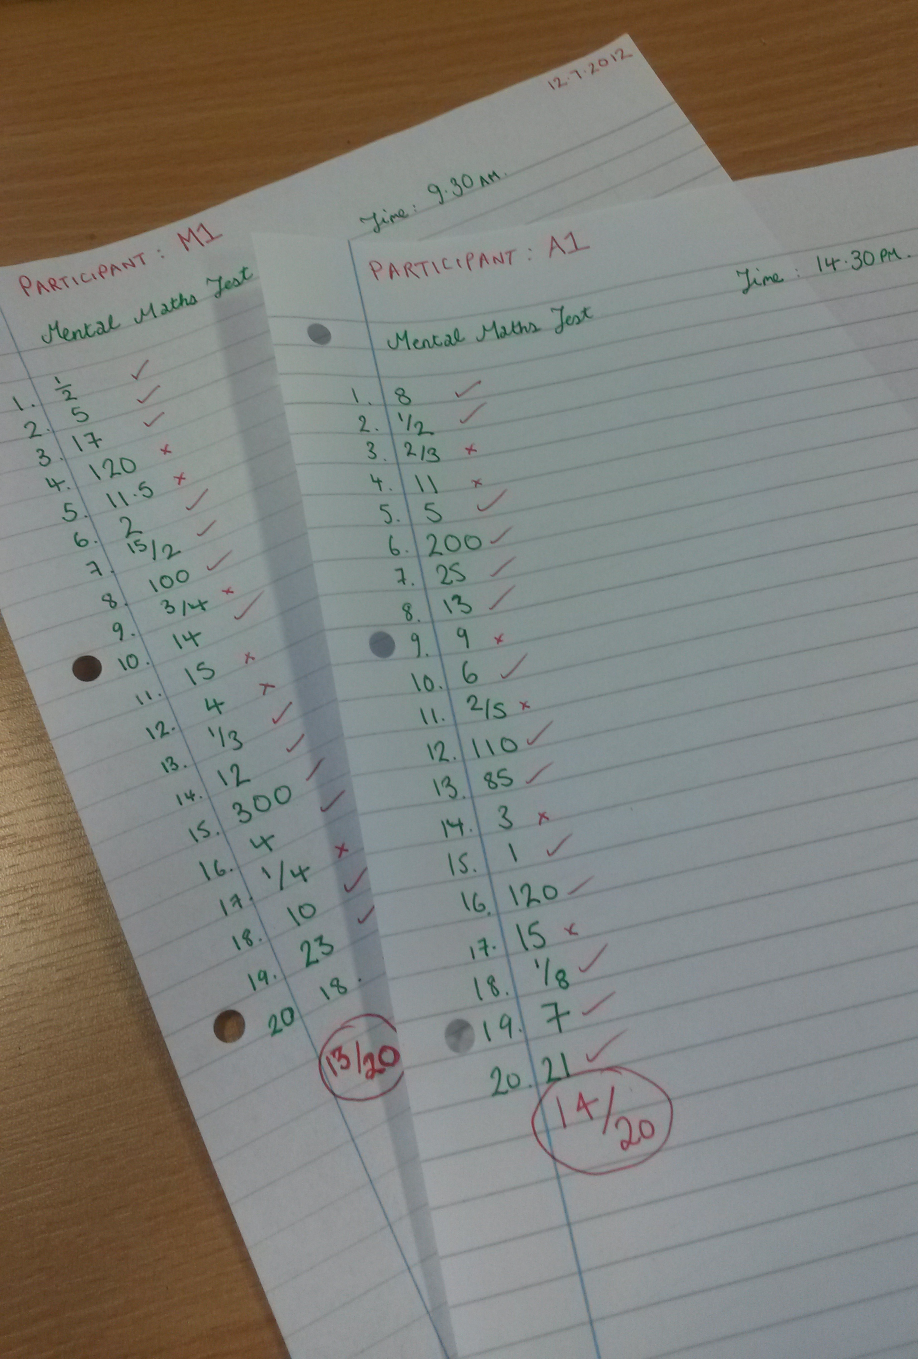 12.7.2012
Time: 9.30 AM.
PARTICIPANT: M1
Mental Maths Test
1. 1/2 ✓
2. 5 ✓
3. 17 ✓
4. 120 ×
5. 11.5 ×
6. 2 ✓
7. 15/2 ✓
8. 100 ✓
9. 3/4 ×
10. 14 ✓
11. 15 ×
12. 4 ×
13. 1/3 ✓
14. 12 ✓
15. 300 ✓
16. 4 ✓
17. 1/4 ×
18. 10 ✓
19. 23 ✓
20 18.
13/20
PARTICIPANT: A1
Time: 14.30 PM.
Mental Maths Test
1. 8 ✓
2. 1/2 ✓
3. 2/3 ×
4. 11 ×
5. 5 ✓
6. 200 ✓
7. 25 ✓
8. 13 ✓
9. 9 ×
10. 6 ✓
11. 2/5 ×
12. 110 ✓
13. 85 ✓
14. 3 ×
15. 1 ✓
16. 120 ✓
17. 15 ×
18. 1/8 ✓
19. 7 ✓
20. 21 ✓
14/20